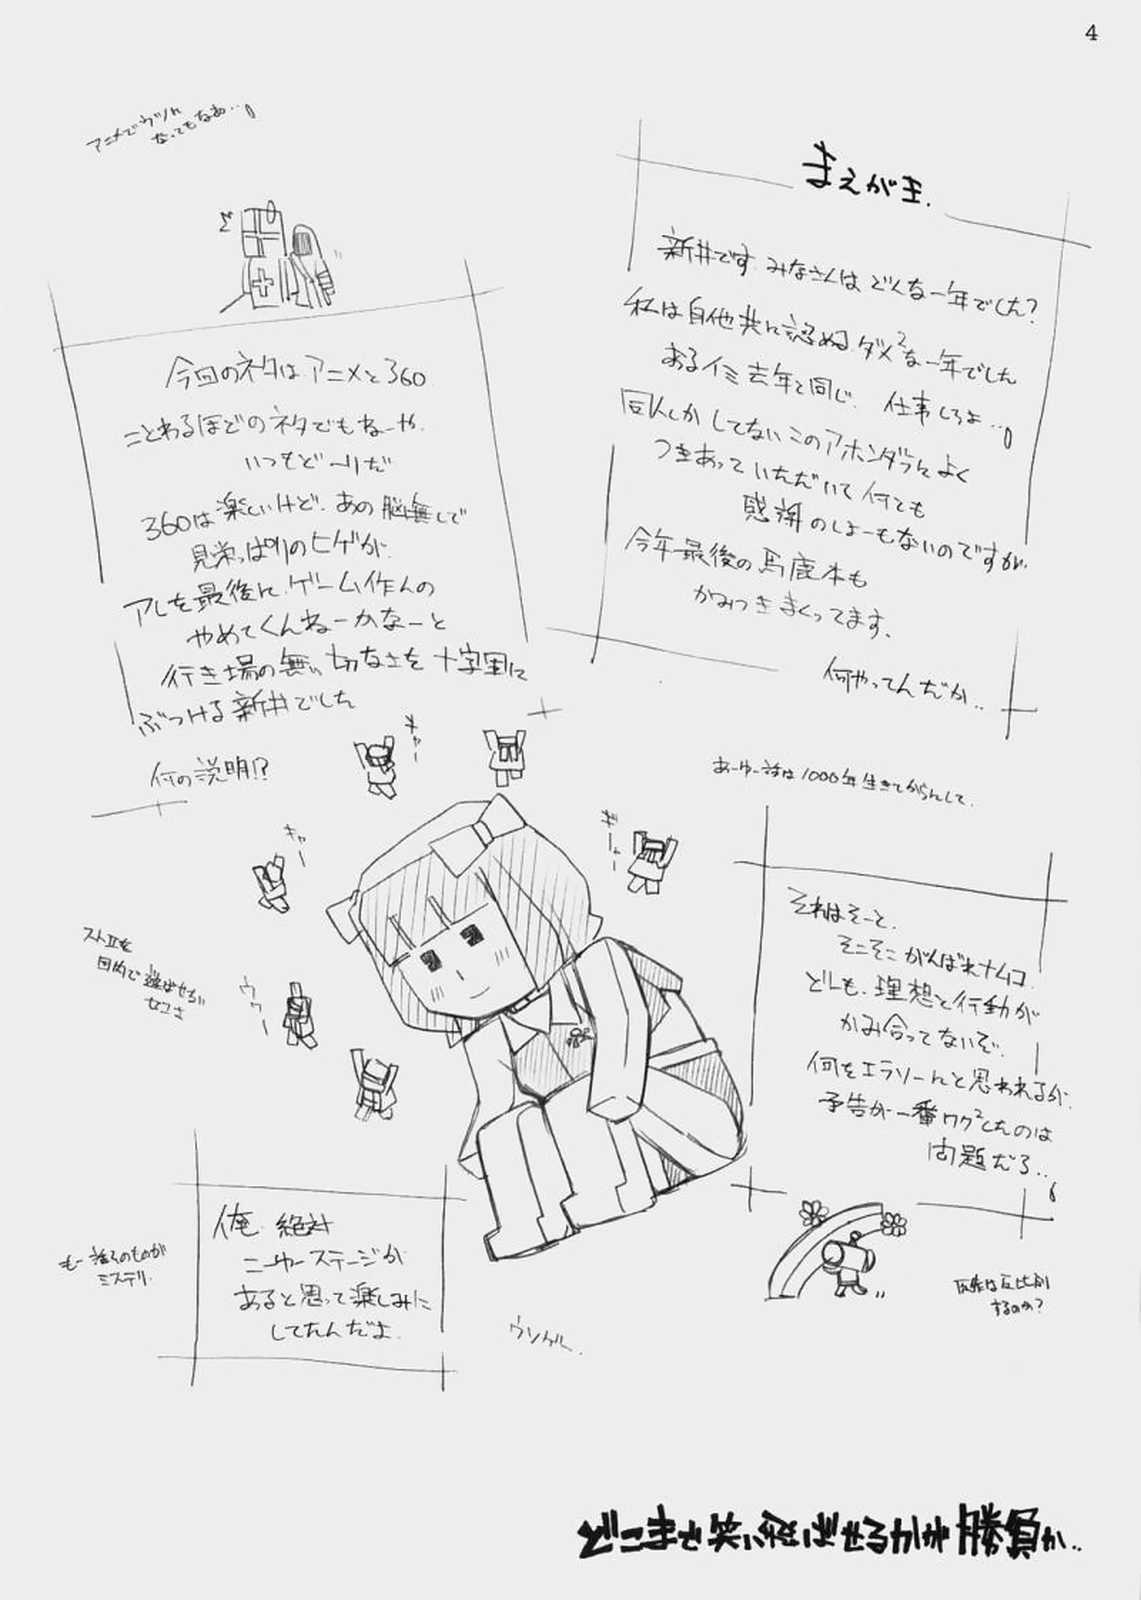 4
まえがき.
新井です みなさんは どんな一年でした?
私は自他共に認める ダメ²な一年でした
あるイミ去年と同じ. 仕事しろよ…
同人しか してない このアホンダラに よく
つきあって いただいて 何とも
感謝のしよーもないのですが
今年最後の馬鹿本も
かみつきまくってます.
何やってんだか..
アニメでウツに
なってもなあ…
今回のネタは アニメと360
ことわるほどのネタでもねーや.
いつもどーりだ
360は楽しいけど. あの脳無しで
見栄っぱりのヒゲが.
アレを最後に ゲーム作んの
やめてくんねーかなーと
行き場の無い切なさを 十字軍に
ぶつける新井でした
何の説明!?
キャー
キャー
ギャー
ウワー
あーゆー詩は1000年生きてからんして.
それはそーと.
そこそこ がんばれナムコ.
どーも. 理想と行動が
かみ合ってないぞ.
何をエラソーにと思われるが.
予告が一番ワク²したのは
問題だろ..
ストIIを
目的で 遊ばせる
俺. 絶対
ニューステージが
あると思って楽しみに
してたんだよ.
ミステリ.
反比例
するのか?
どこまで笑い飛ばせるかが勝負か..